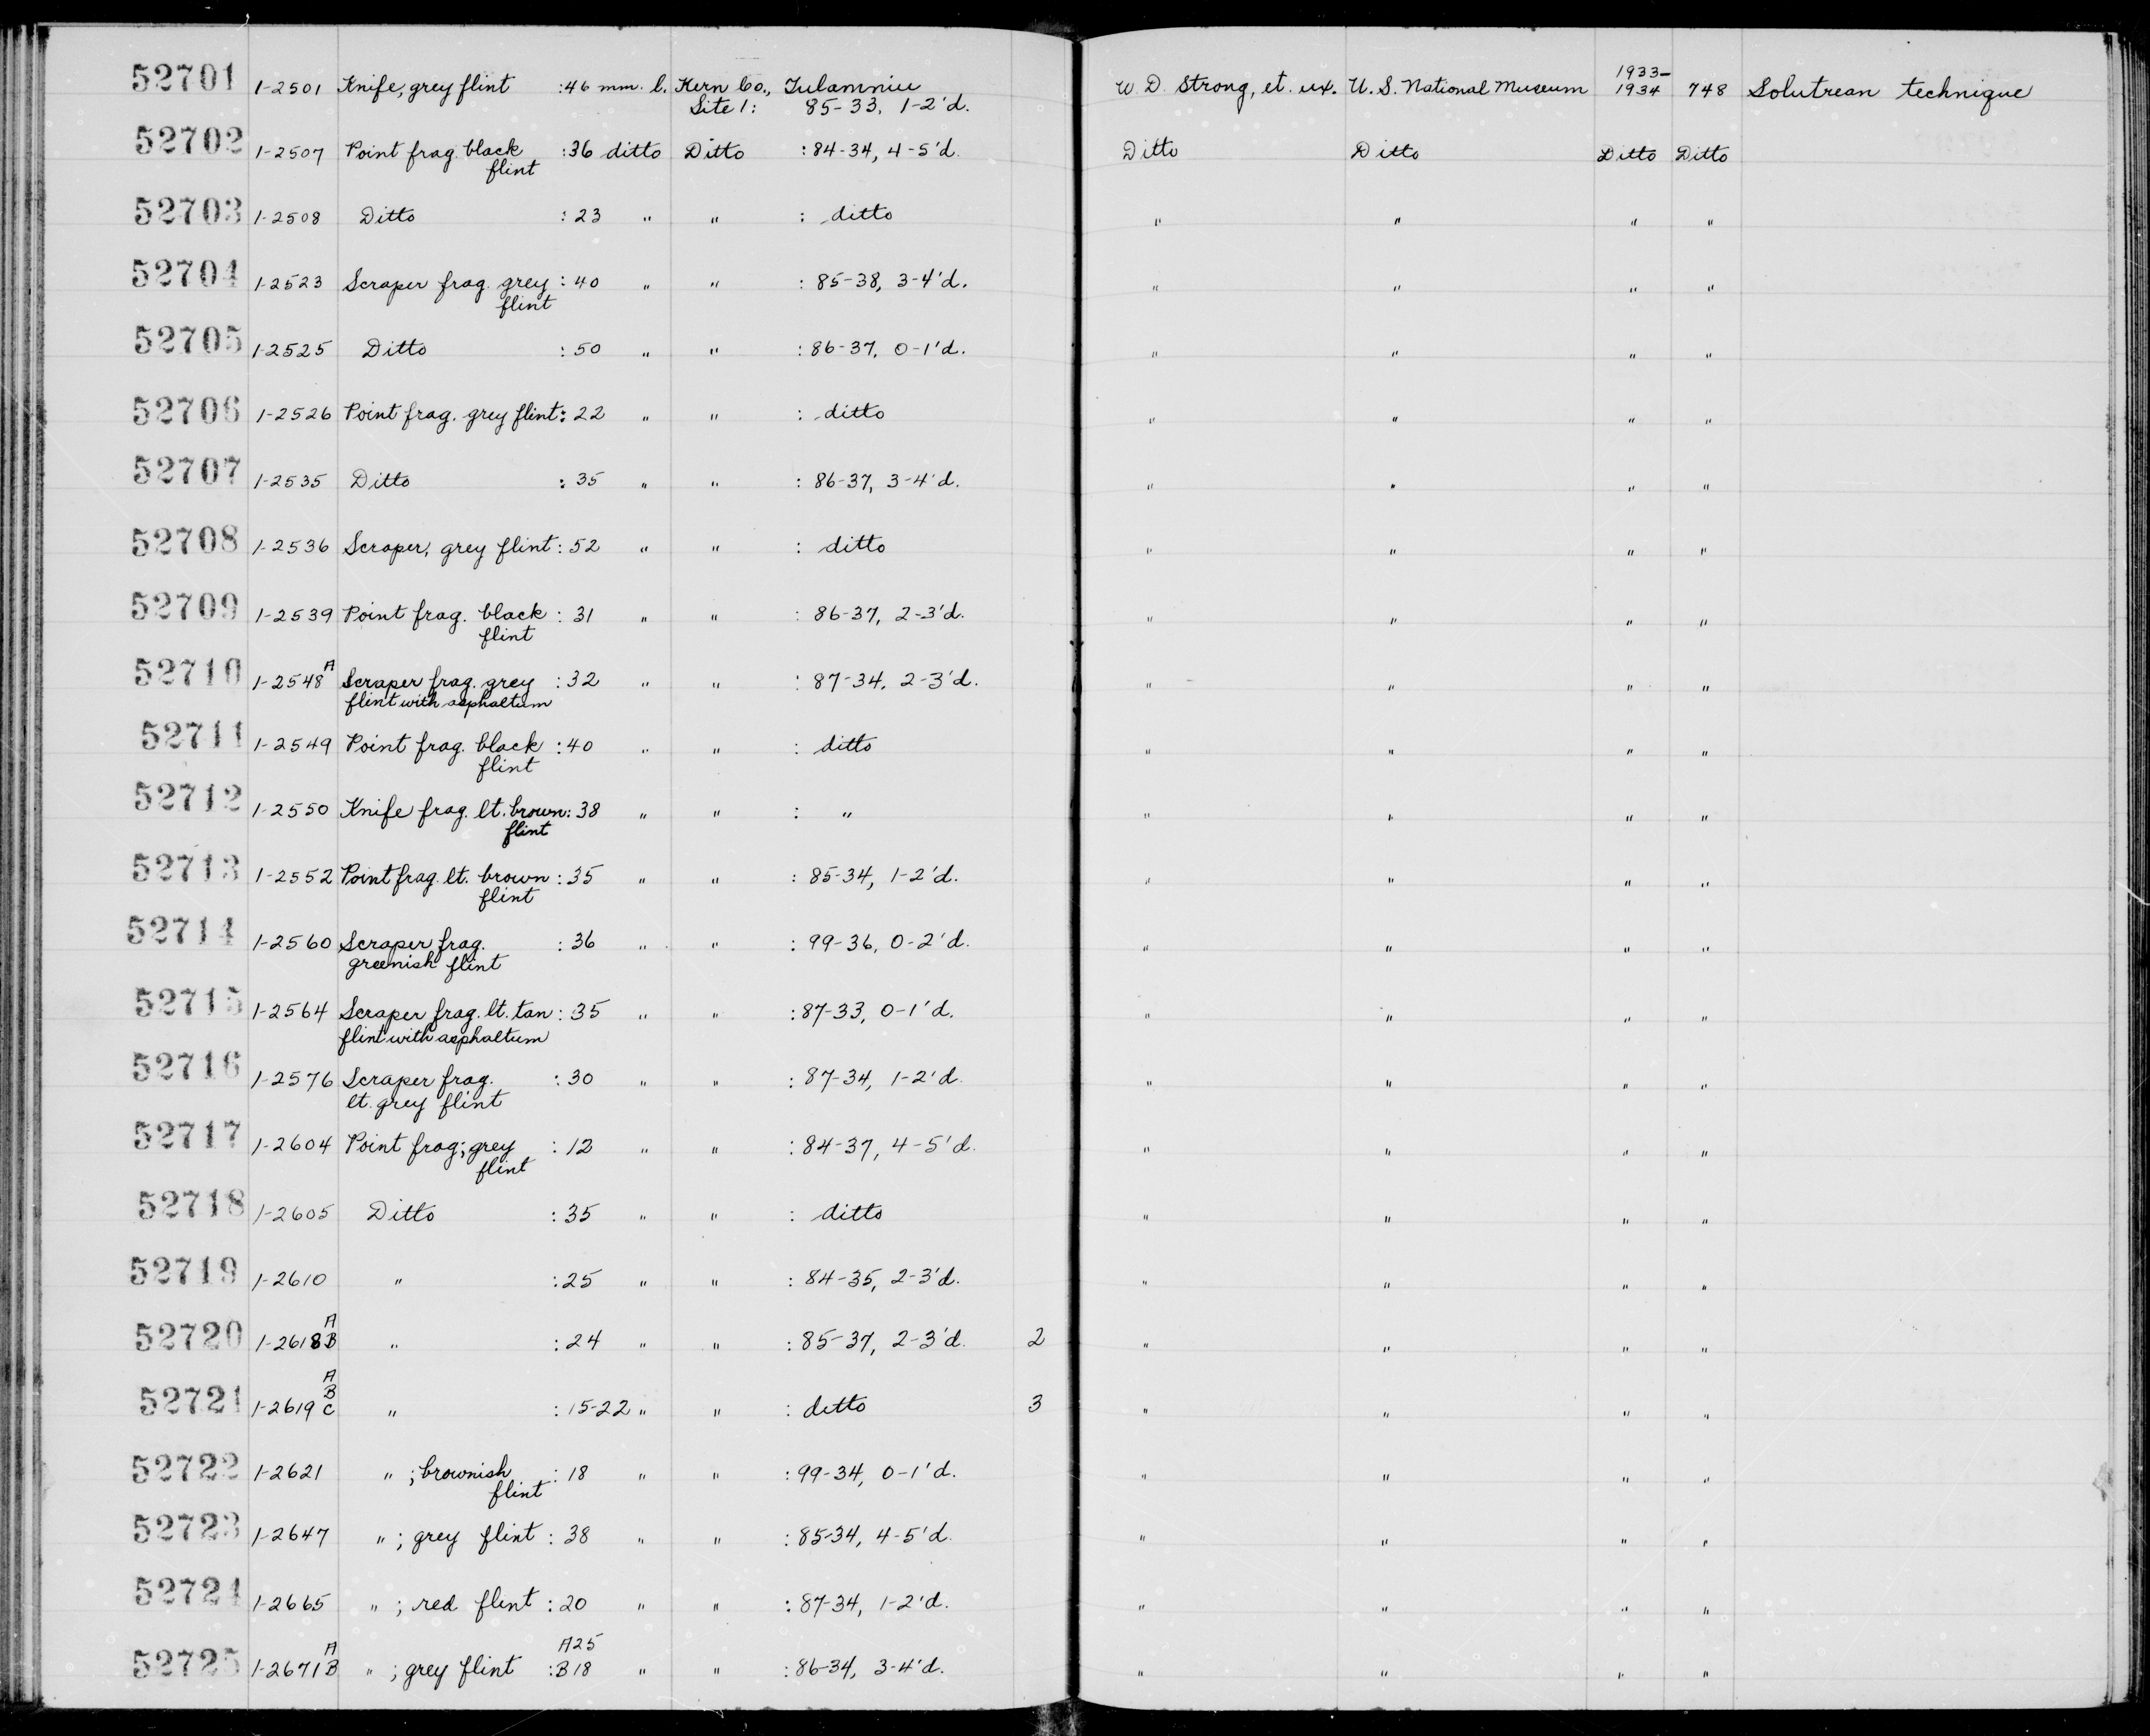 52701 1-2501 Knife, grey flint :46 mm. l. Kern Co., Tulamniu W D. Strong, et. ux. U. S. National Museum 1933-1934 748 Solutrean technique
Site 1: 85-33, 1-2'd.
52702 1-2507 Point frag. black :36 ditto Ditto :84-34, 4-5'd. Ditto Ditto Ditto Ditto
flint
52703 1-2508 Ditto :23 " " : ditto " " " "
52704 1-2523 Scraper frag. grey :40 " " :85-38, 3-4'd. " " " "
flint
52705 1-2525 Ditto :50 " " :86-37, 0-1'd. " " " "
52706 1-2526 Point frag. grey flint: 22 " " : ditto " " " "
52707 1-2535 Ditto :35 " " :86-37, 3-4'd. " " " "
52708 1-2536 Scraper, grey flint :52 " " : ditto " " " "
52709 1-2539 Point frag. black :31 " " :86-37, 2-3'd. " " " "
flint
52710 1-2548 A Scraper frag. grey :32 " " :87-34, 2-3'd. " " " "
flint with asphaltum
52711 1-2549 Point frag. black :40 " " : ditto " " " "
flint
52712 1-2550 Knife frag. lt. brown: 38 " " : " " " " "
flint
52713 1-2552 Point frag. lt. brown :35 " " :85-34, 1-2'd. " " " "
flint
52714 1-2560 Scraper frag. :36 " " :99-36, 0-2'd. " " " "
greenish flint
52715 1-2564 Scraper frag. lt. tan :35 " " :87-33, 0-1'd. " " " "
flint with asphaltum
52716 1-2576 Scraper frag. :30 " " :87-34, 1-2'd. " " " "
lt. grey flint
52717 1-2604 Point frag; grey :12 " " :84-37, 4-5'd. " " " "
flint
52718 1-2605 Ditto :35 " " : ditto " " " "
52719 1-2610 " :25 " " :84-35, 2-3'd. " " " "
A
52720 1-2618B " :24 " " :85-37, 2-3'd. 2 " " " "
A
B
52721 1-2619 C " :15-22 " " : ditto 3 " " " "
52722 1-2621 " ; brownish :18 " " :99-34, 0-1'd. " " " "
flint
52723 1-2647 " ; grey flint :38 " " :85-34, 4-5'd. " " " "
52724 1-2665 " ; red flint :20 " " :87-34, 1-2'd. " " " "
A A25
52725 1-2671B " ; grey flint :B18 " " :86-34, 3-4'd. " " " "